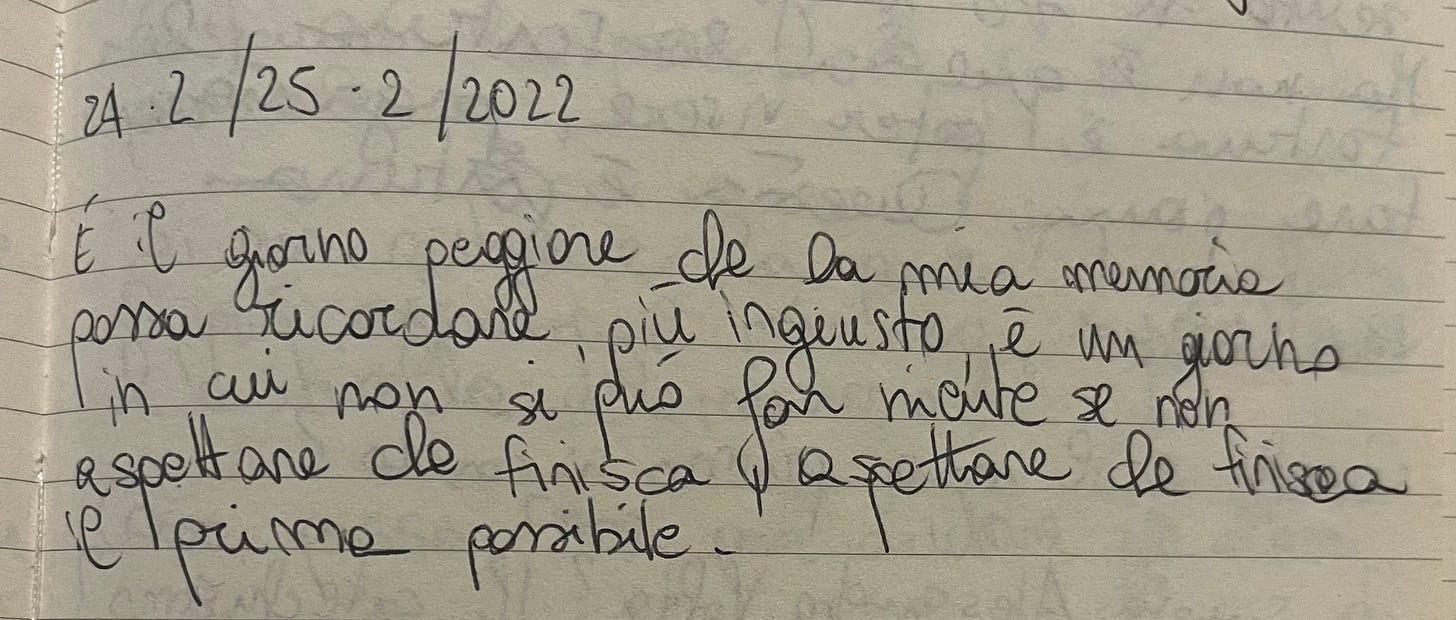 24.2/25.2/2022
É il giorno peggiore che la mia memoria
possa ricordare, più ingiusto, è un giorno
in cui non si può far niente se non
aspettare che finisca, aspettare che finisca
il prima possibile.